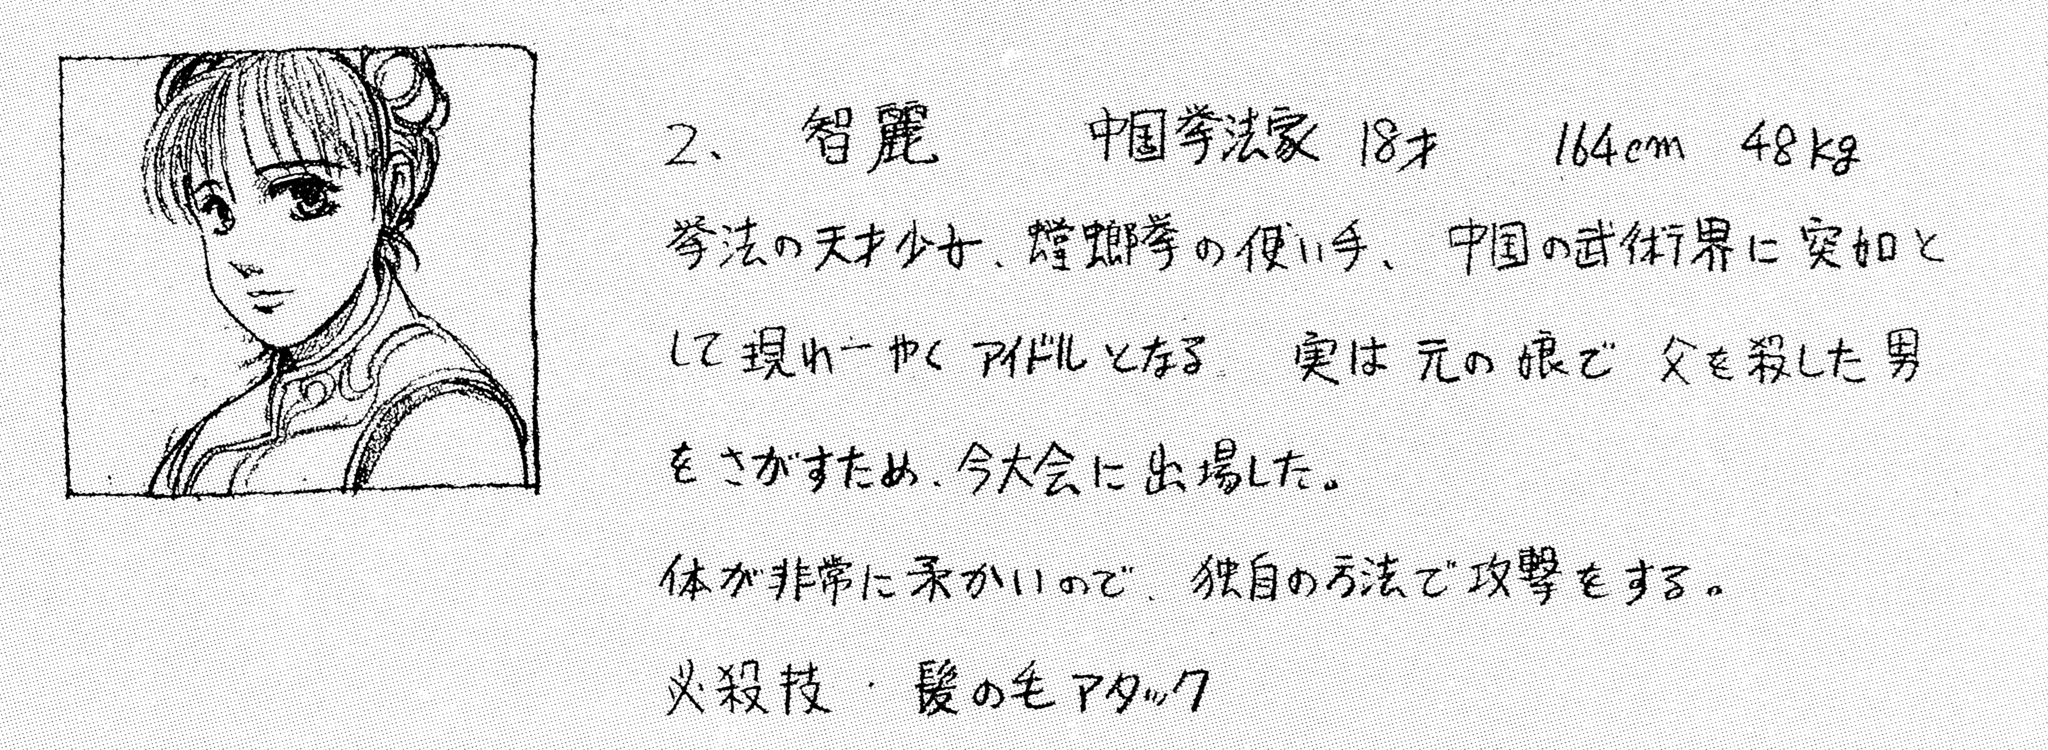 2、 智麗 中国拳法家 18才 164cm 48kg
拳法の天才少女、螳螂拳の使い手、中国の武術界に突如と
して現れ一やくアイドルとなる 実は元の娘で父を殺した男
をさがすため、今大会に出場した。
体が非常に柔かいので、独自の方法で攻撃をする。
必殺技・髪の毛アタック